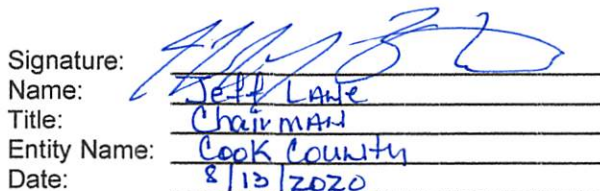 Signature:
Name: Jeff Lane
Title: Chairman
Entity Name: Cook County
Date: 8/13/2020